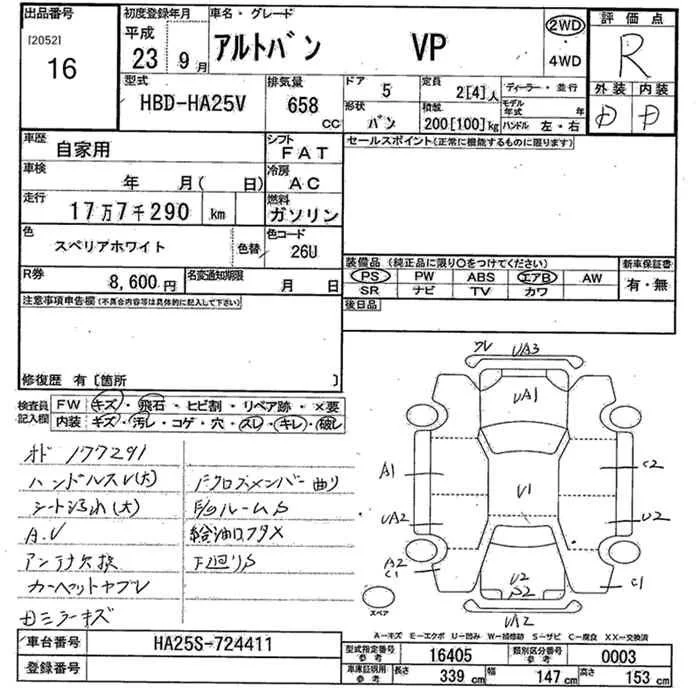 出品番号
[2052]
16
初度登録年月
平成
23 9月
車名・グレード
アルトバン VP
2WD
4WD
評価点
R
外装 内装
D D
型式
HBD-HA25V
排気量
658 CC
ドア 5
形状 バン
定員 2[4]人
積載 200[100]kg
ディーラー・並行
モデル年式 年
ハンドル 左・右
車歴
自家用
シフト
FAT
車検
年 月( 日)
冷房
AC
走行
17万7千290 km
燃料
ガソリン
色
スペリアホワイト
色替
色コード
26U
R券
8,600円
名変通知期限
月 日
セールスポイント(正常に機能するものに限ります)
装備品(純正品に限り○をつけてください)
PS PW ABS エアB AW
SR ナビ TV カワ
新車保証書
有・無
後日品
注意事項申告欄(不具合内容等は具体的に記入して下さい)
修復歴 有〔箇所 〕
検査員記入欄
FW キズ・飛石・ヒビ割・リペア跡・×要
内装 キズ・汚レ・コゲ・穴・スレ・キレ・破レ
オド 177291
ハンドルスレ(大)
シート汚れ(大)
A.V
アンテナ欠損
カーペットヤブレ
Fクロスメンバー曲り
給油口フタX
下廻りS
UA3
UA1
A1
C2
U1
UA2
U2
A2
C1
C1
U2
UA2
スペア
A-キズ E-エクボ U-凹み W-補修跡 S-サビ C-腐食 XX-交換済
車台番号 HA25S-724411
登録番号
型式指定番号 参考 16405
類別区分番号 参考 0003
車庫証明用 参考
長さ 339 cm 幅 147 cm 高さ 153 cm